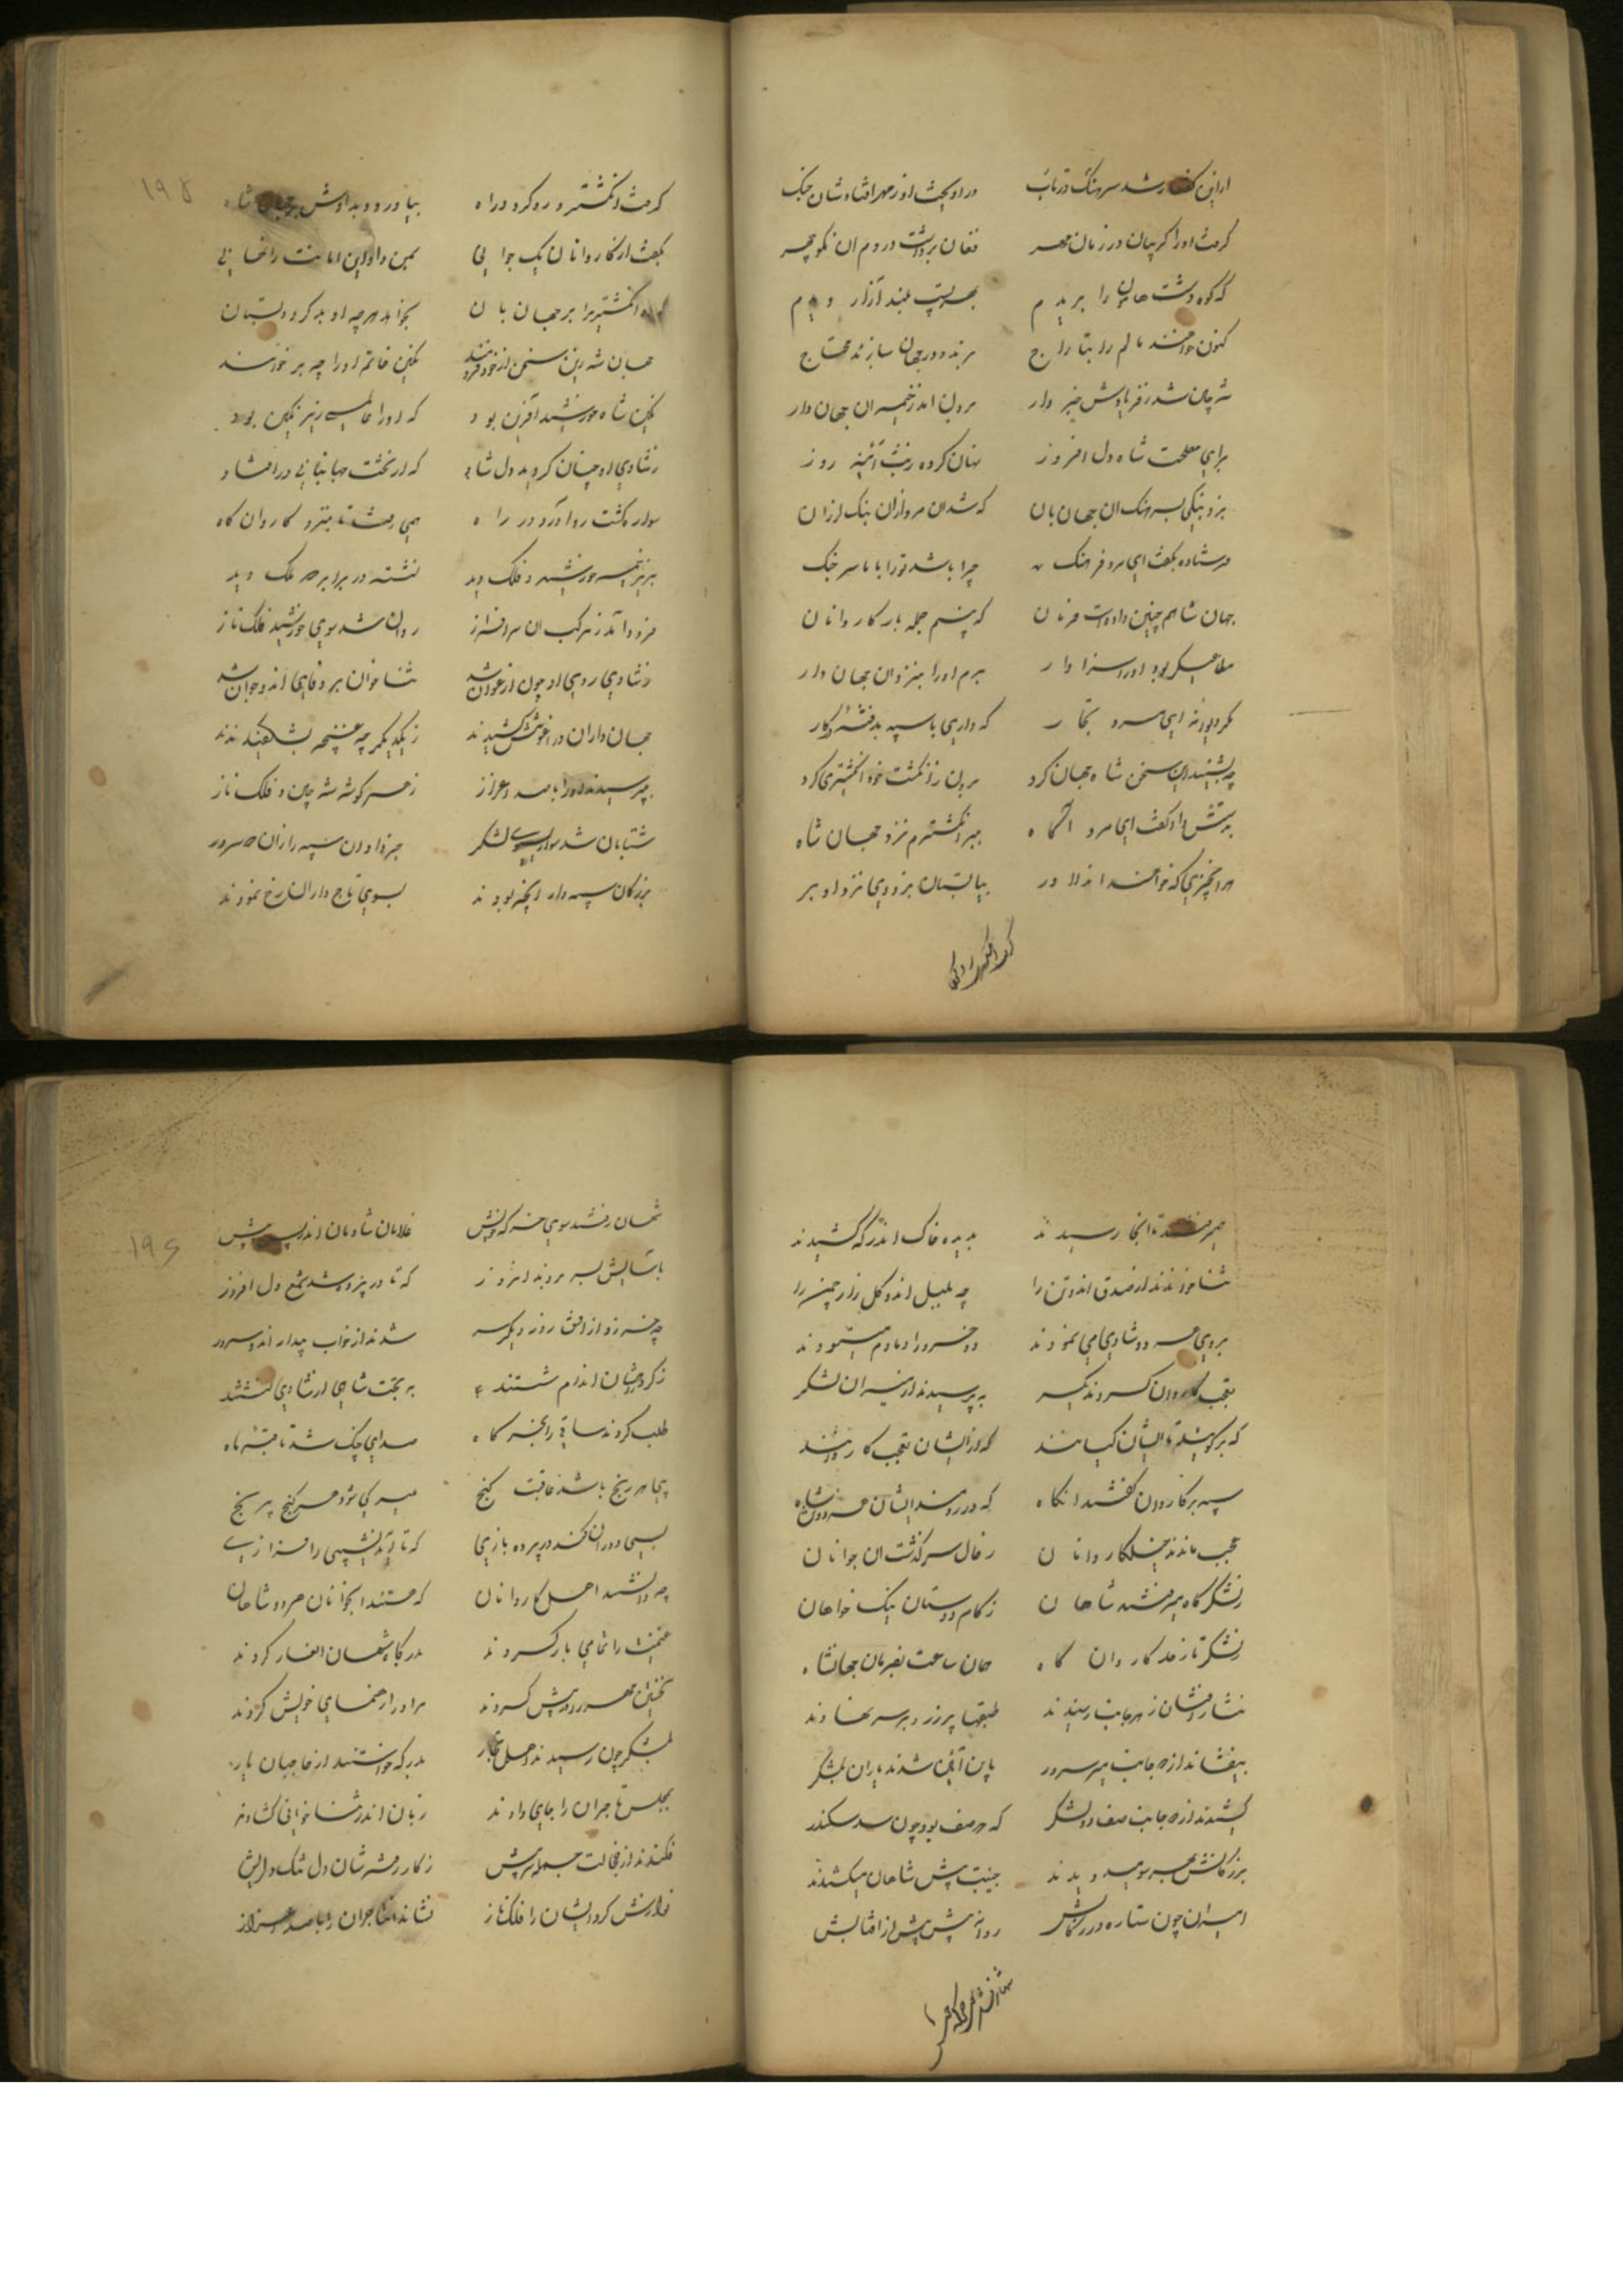 ازین گفتار شد سرهنگ در تاب در آویخت از مهر افتاد شان جنگ
گرفت او را گریبان در زمان مهر فغان برداشت در دم آن نکو چهر
که کوه و دشت هامون را بریدم بهر پست و بلند آزار دیدم
کنون خواهند مالم را بتاراج برند و در جهان سازند محتاج
شه چین شد ز فریادش خبردار برون آمد ز خیمه آن جهان دار
برای مصلحت شاه دل افروز نهان کرده رخش آئینه روز
بزد بانگی بسرهنگ آن جهان بان که شد آن مرد از آن بانگ لرزان
فرستاده بگفت ای مرد فرهنگ چرا باشد تو را با ما سر جنگ
جهان شاهم چنین داده است فرمان که بینم جمله بار کاروانان
متاعی کو بود او را سزاوار برم او را بنزدان جهان دار
مگر دیوانه ای مرد تجار که داری با سپه بد فتنه کار
چه بشنید این سخن شاه جهان کرد برون ز انگشت خود انگشتری کرد
بدستش داد گفت ای مرد آگاه ببر انگشترم نزد جهان شاه
هر آن چیزی که خواهند از دلاور بیا بستان بزودی نزد او بر
گرفت انگشتر و رو کرد
گرفت انگشتر و رو کرد در راه بیاورد و بدادش بر جهان شاه
بگفت از کاروانان یک جوانی بمن داد این امانت را نهانی
انگشتریرا بر جهان بان بخواهد هر چه او بد کرد و بستان
جهان شه زین سخن از خود فرو ماند نگین خاتم او را چه بر خواند
نگین شاه خورشید آفرین بود که او را عالمی زیر نگین بود
ز شادی او چنان گردید دل شاد که از تخت جهانبانی در افتاد
سوار گشت رو آورد در راه همی رفتند تا نزد کاروان گاه
بزیر خیمه خورشید فلک دید نشسته در برابر مه ملک دید
فرود آمد ز مرکب آن سرافراز روان شد سوی خورشید فلک ناز
ز شادی روی او چون ارغوان شد ثنا خوان بر وفای آندو جوان شد
جهان داران در آغوشش کشیدند ز یکدیگر چه غنچه بشکفیدند
چه پرسیدند او را با صد اعزاز ز هر گوشه شه چین و فلک ناز
شتابان شد سوار بسوی لشکر خبر دادن سپه را زان سرور
بزرگان سپه دار آنچه بودند بسوی تاج داران رخ نمودند
همی رفتند تا آنجا رسیدند بدیده خاک اندر گه کشیدند
ثنا خواندند از صدق آندو تن را چه بلبل آندو گل زار چمن را
بروی هر دو شادی می نمودند دو خسرو را دمادم میستودند
تعجب کاروان کردند یکسر به پرسیدند از میران لشکر
که بر گوئید تا ایشان کیانند که از ایشان تعجب کاروانند
سپه بر کاروان گفتند آنگاه که در روند ایشان هر دو شاه
عجب ماندند خیل کاروانان ز حال سرگذشت آن جوانان
ز لشکر گاه میرفتند شاهان ز کام دوستان نیک خواهان
ز لشکر تا زمد کاروان گاه همان ساعت بفرمان جهانشاه
نثار افشان ز هر جانب رسیدند طبقها پر زر و بر سر نهادند
بیفشاند از هر جانب بر سرور باین آئین شدند یاران لشکر
کشیدند از هر جانب صف دو لشکر که هر صف بود چون سد سکندر
بزرگانش بهر سو میدویدند جنیبت پیش شاهان میکشیدند
امیران چون ستاره در رکابش روانه پیش پیش از آفتابش
شهان رفتند سوی خرگه خویش
شهان رفتند سوی خرگه خویش غلامان شادمان اندر پس و پیش
بآسایش بسر بردند آنروز که تا در پرده شد شمع دل افروز
چه خور زد از افق روز دیگر سر شدند از خواب بیدار آندو سرور
ز گرد ره اندام شستند به تخت شاهی از شادی نشستند
طلب کردند ساقی را سحر گاه صدای چنگ شد تا قبه ماه
پی هر رنج باشد عاقبت گنج میسر کی شود هر گنج بی رنج
بسی دوران کند در پرده بازی که تا آرد نشیبی را فرازی
چه دانستند اهل کاروانان که هستند آنجوانان هر دو شاهان
غنیمت را تمامی بار کردند بدرگاه شهان ایثار کردند
نخستین مهر را در پیش کردند مر او را رهنمای خویش کردند
بلشکر چون رسیدند اهل تجار بدرگه خواستند از حاجبان بار
بمجلس تاجران را جای دادند زبان اندر ثنا خوانی گشادند
فکندند از خجالت جمله سر پیش ز کار رفته شان دل تنگ و دل ریش
نوازش کرد ایشان را فلک ناز نشاند آن تاجران را با صد اعزاز
۱۹۵
۱۹۶